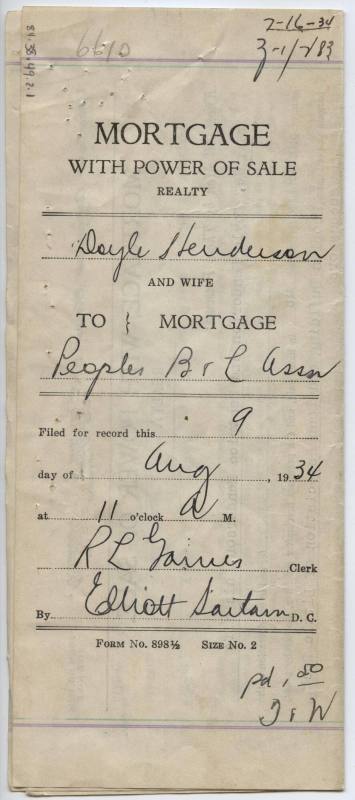 7-16-34
84.35.49.2.1
6610
MORTGAGE
WITH POWER OF SALE
REALTY
Doyle Henderson
AND WIFE
TO { MORTGAGE
Peoples B & L Assn
Filed for record this 9
day of Aug, 1934
at 11 o'clock A M.
R L Gaines Clerk
By Elliott Sartain D. C.
FORM No. 898½ SIZE No. 2
pd. .50